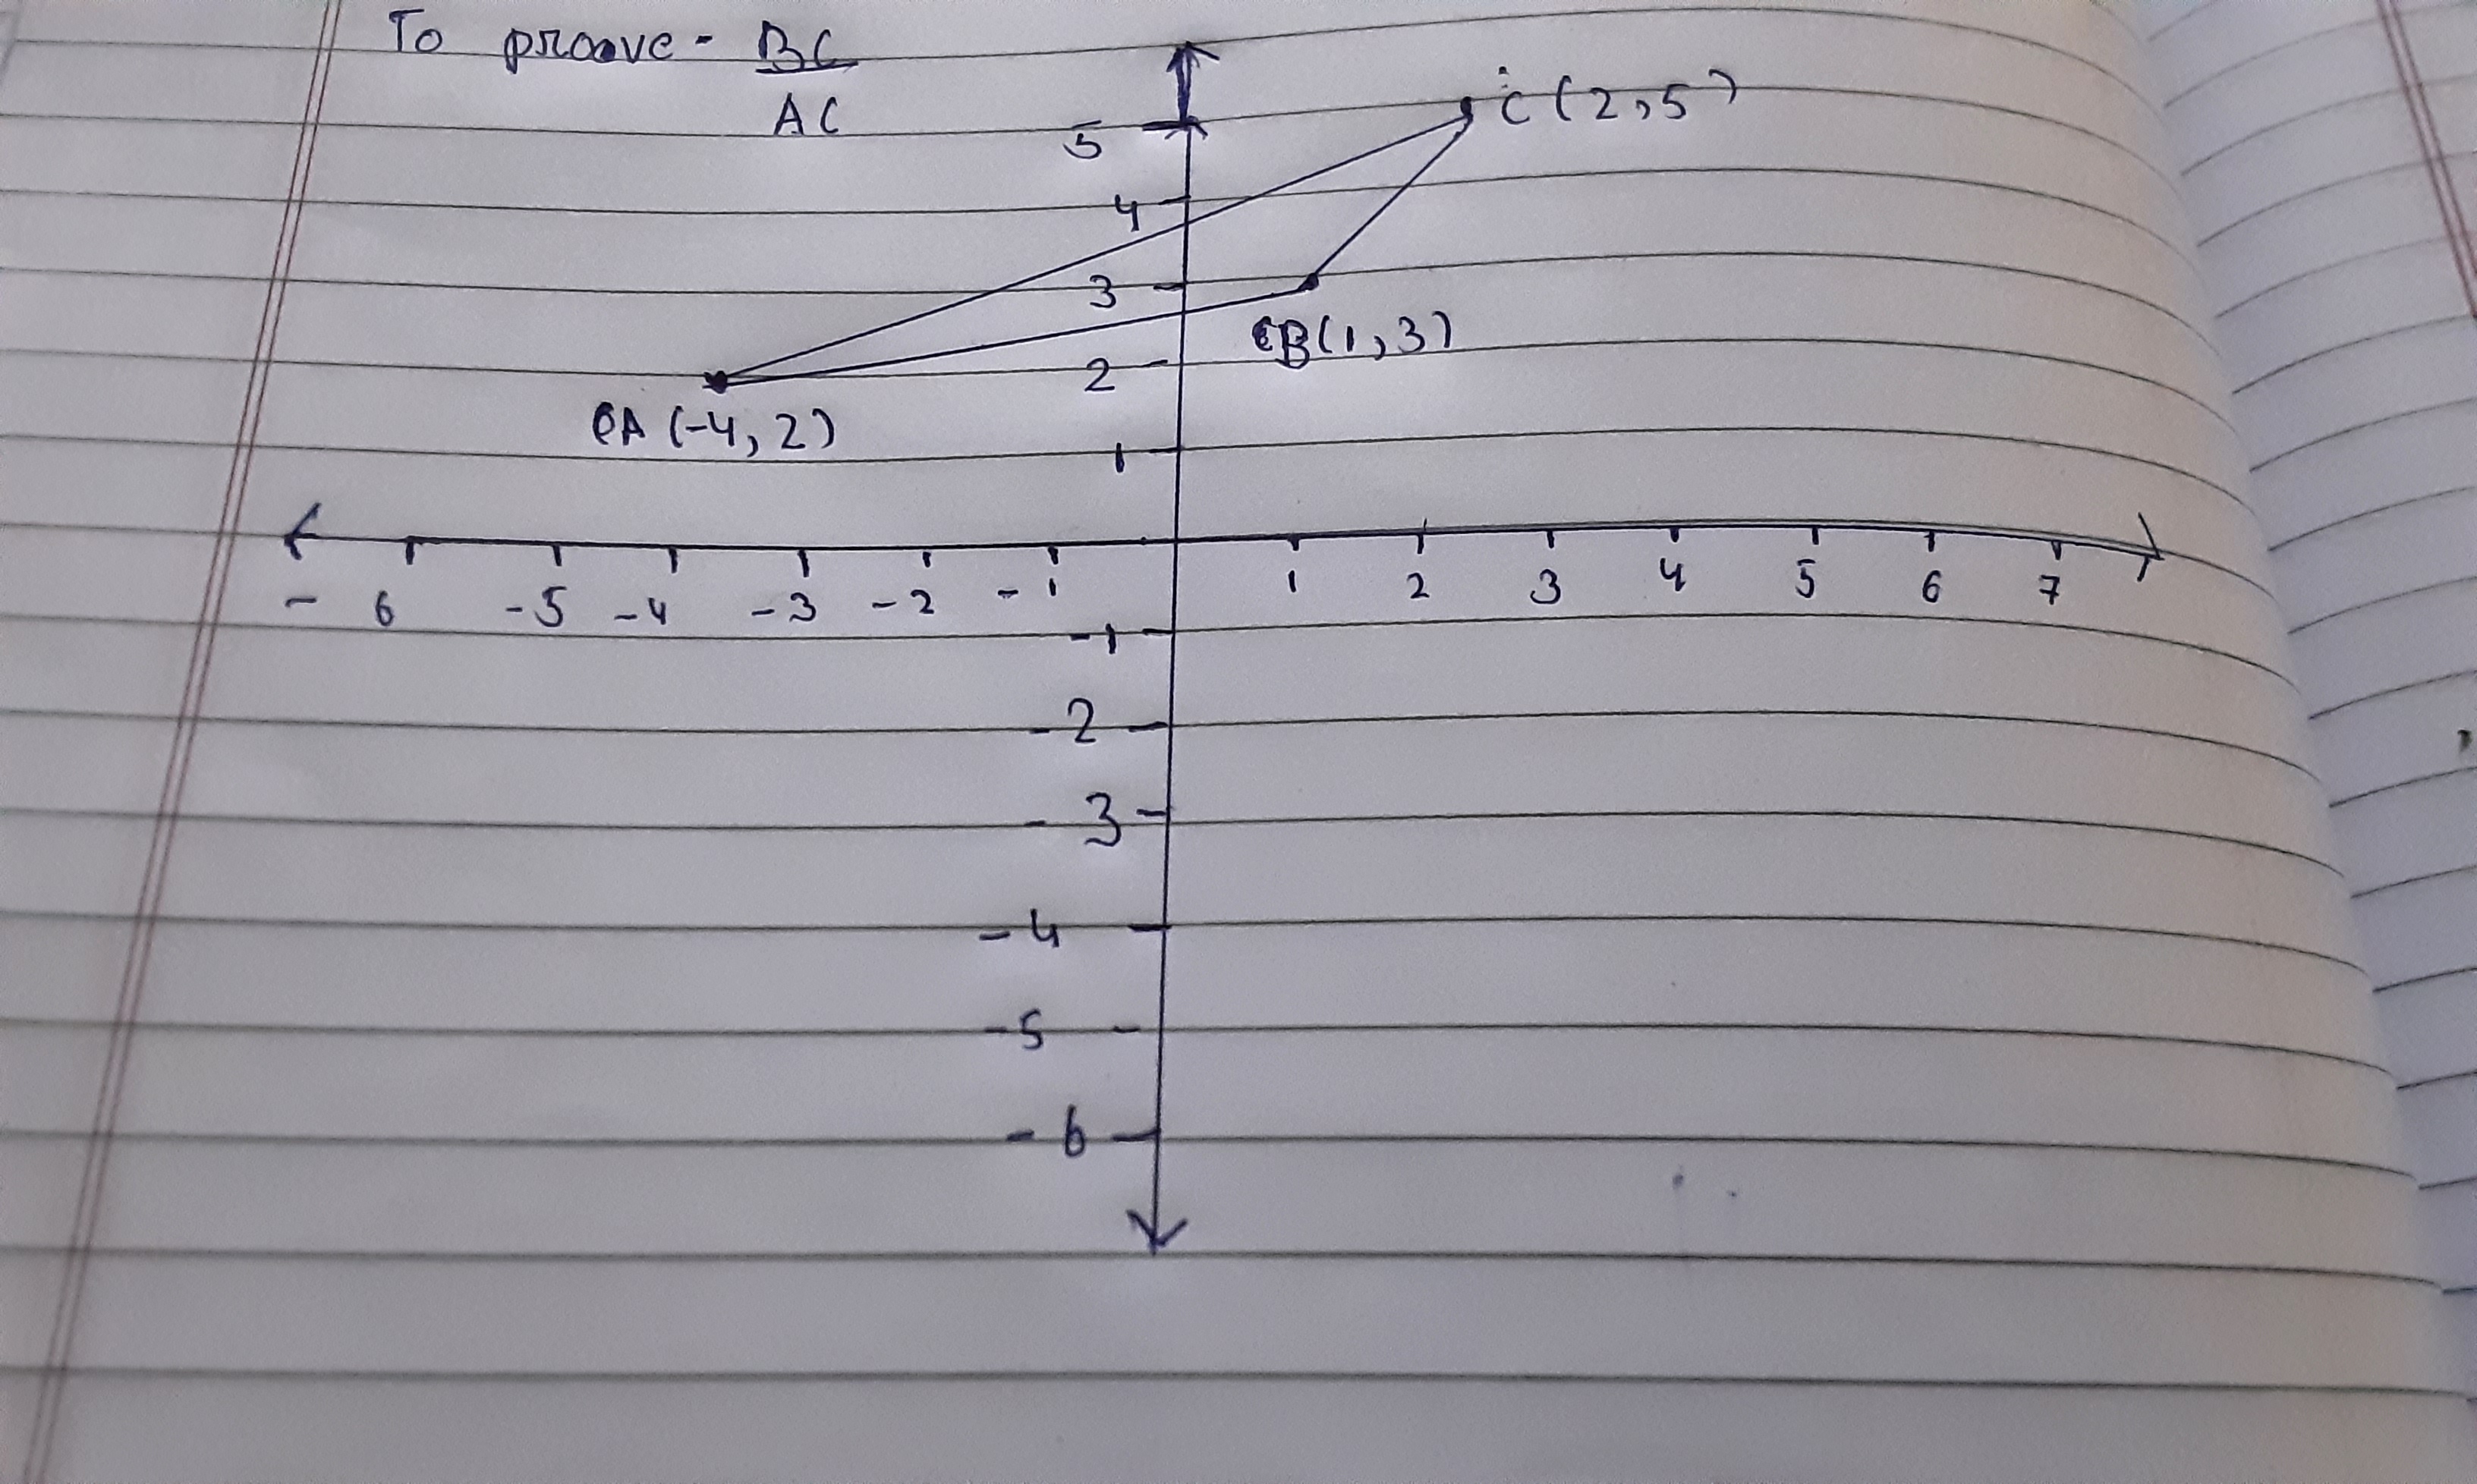 To proove - BC
AC
C(2,5)
5
4
3
B(1,3)
2
A(-4,2)
1
-6 -5 -4 -3 -2 -1 1 2 3 4 5 6 7
-1
-2
-3
-4
-5
-6